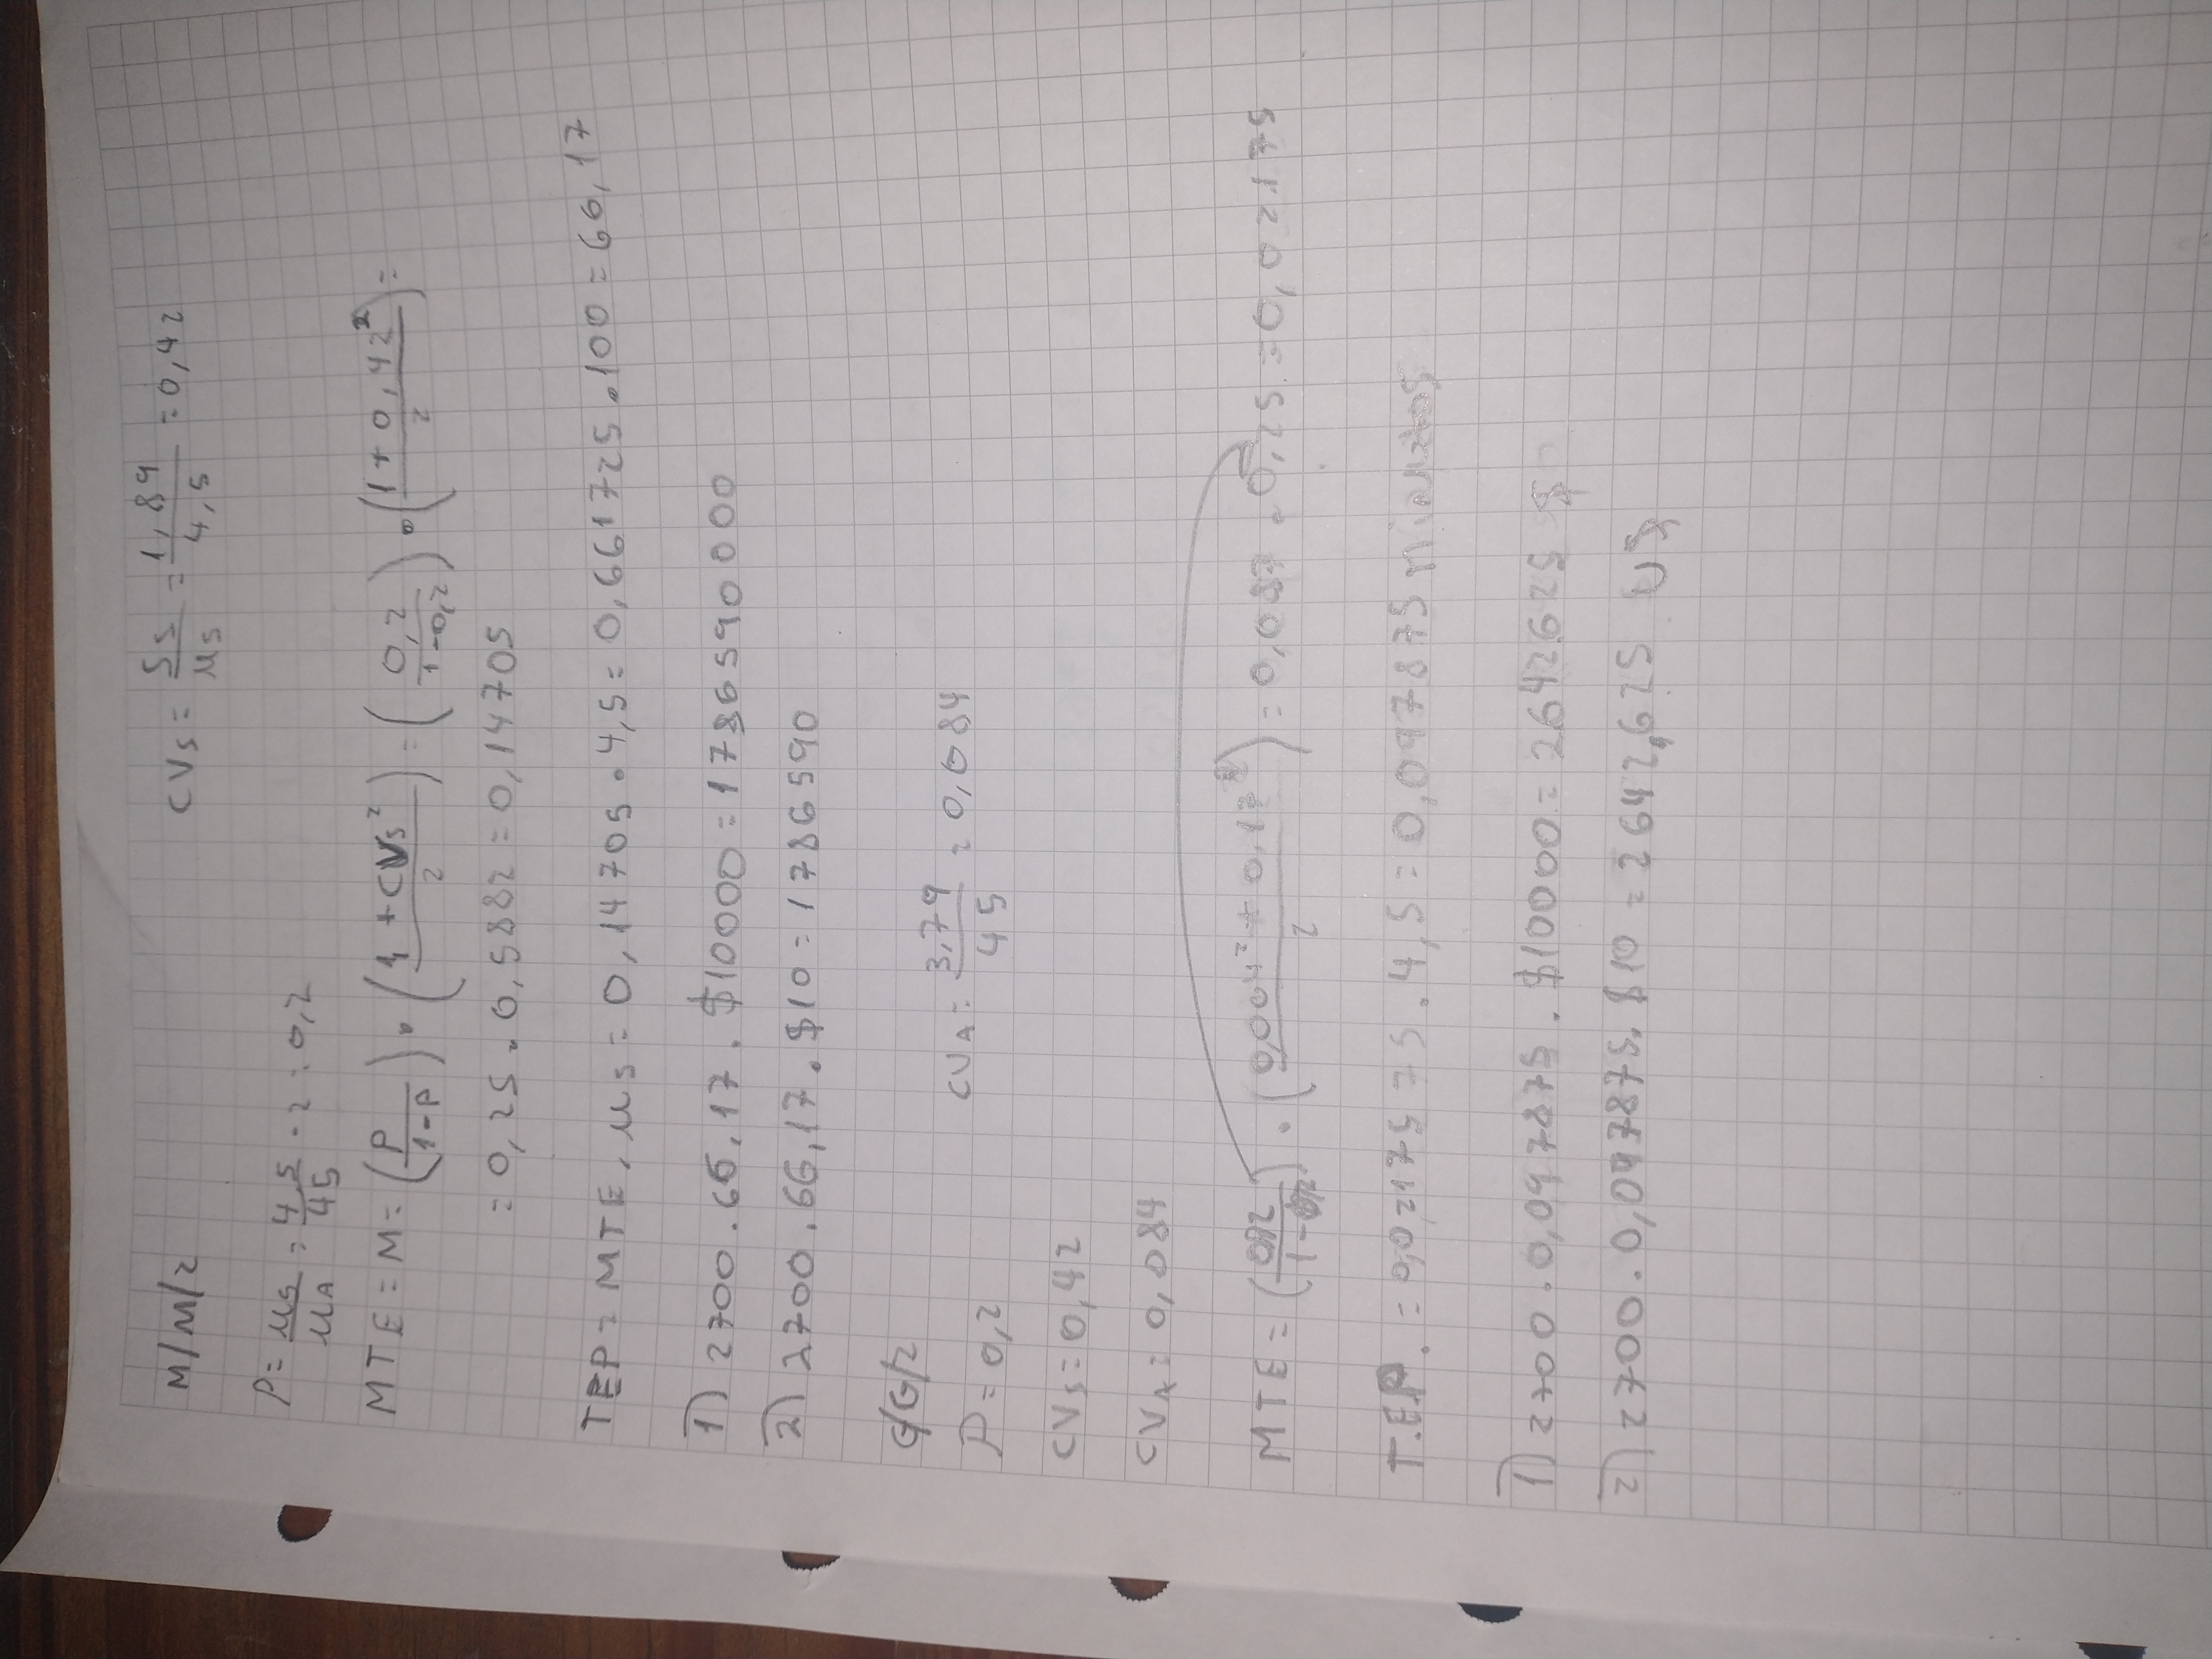 M/M/2
CVs = Ss/μs = 1,89/4,5 = 0,42
P = μs/μA = 4,5/45 · 2 = 0,2
MTE = M = (P/1-P) · (1+CVs²/2) = (0,2/1-0,2) · (1+0,42²/2) =
= 0,25 . 0,5882 = 0,14705
TEP = MTE . μs = 0,14705 . 4,5 = 0,661725 . 100 = 66,17
1) 2700 . 66,17 . $10000 = 1786590000
2) 2700 . 66,17 . $10 = 1786590
G/G/2
CVA = 3,79/45 = 0,084
P = 0,2
CVs = 0,42
CVA = 0,084
MTE = (0,2/1-0,2) . (0,004²+0,17²/2) = 0,087 . 0,25 = 0,02175
T.E.P. = 0,02175 75 . 4,5 = 0,097875 minutos
1) 2700 . 0,097875 . $10000 = 2642625 $
2) 2700 . 0,097875 . $10 = 2642,625 U$